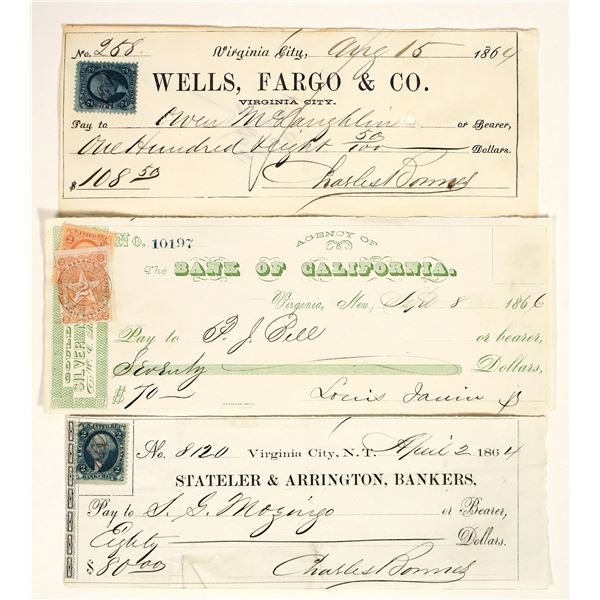 No. 258. Virginia City, Aug 15 1864
WELLS, FARGO & CO.
VIRGINIA CITY.
Pay to Owen McLaughlin or Bearer,
One Hundred & eight 50/100 Dollars.
$108 50 Charles Bonner
No. 10197
AGENCY OF
The BANK OF CALIFORNIA.
Virginia, Nev, Sept 8 1866
Pay to P. J. Bell or bearer,
Seventy Dollars,
$70— Louis Janin Jr
SILVER
No. 8120 Virginia City, N.T. April 2 1864
STATELER & ARRINGTON, BANKERS,
Pay to S. G. Mozingo or Bearer,
Eighty Dollars.
$80.00 Charles Bonner